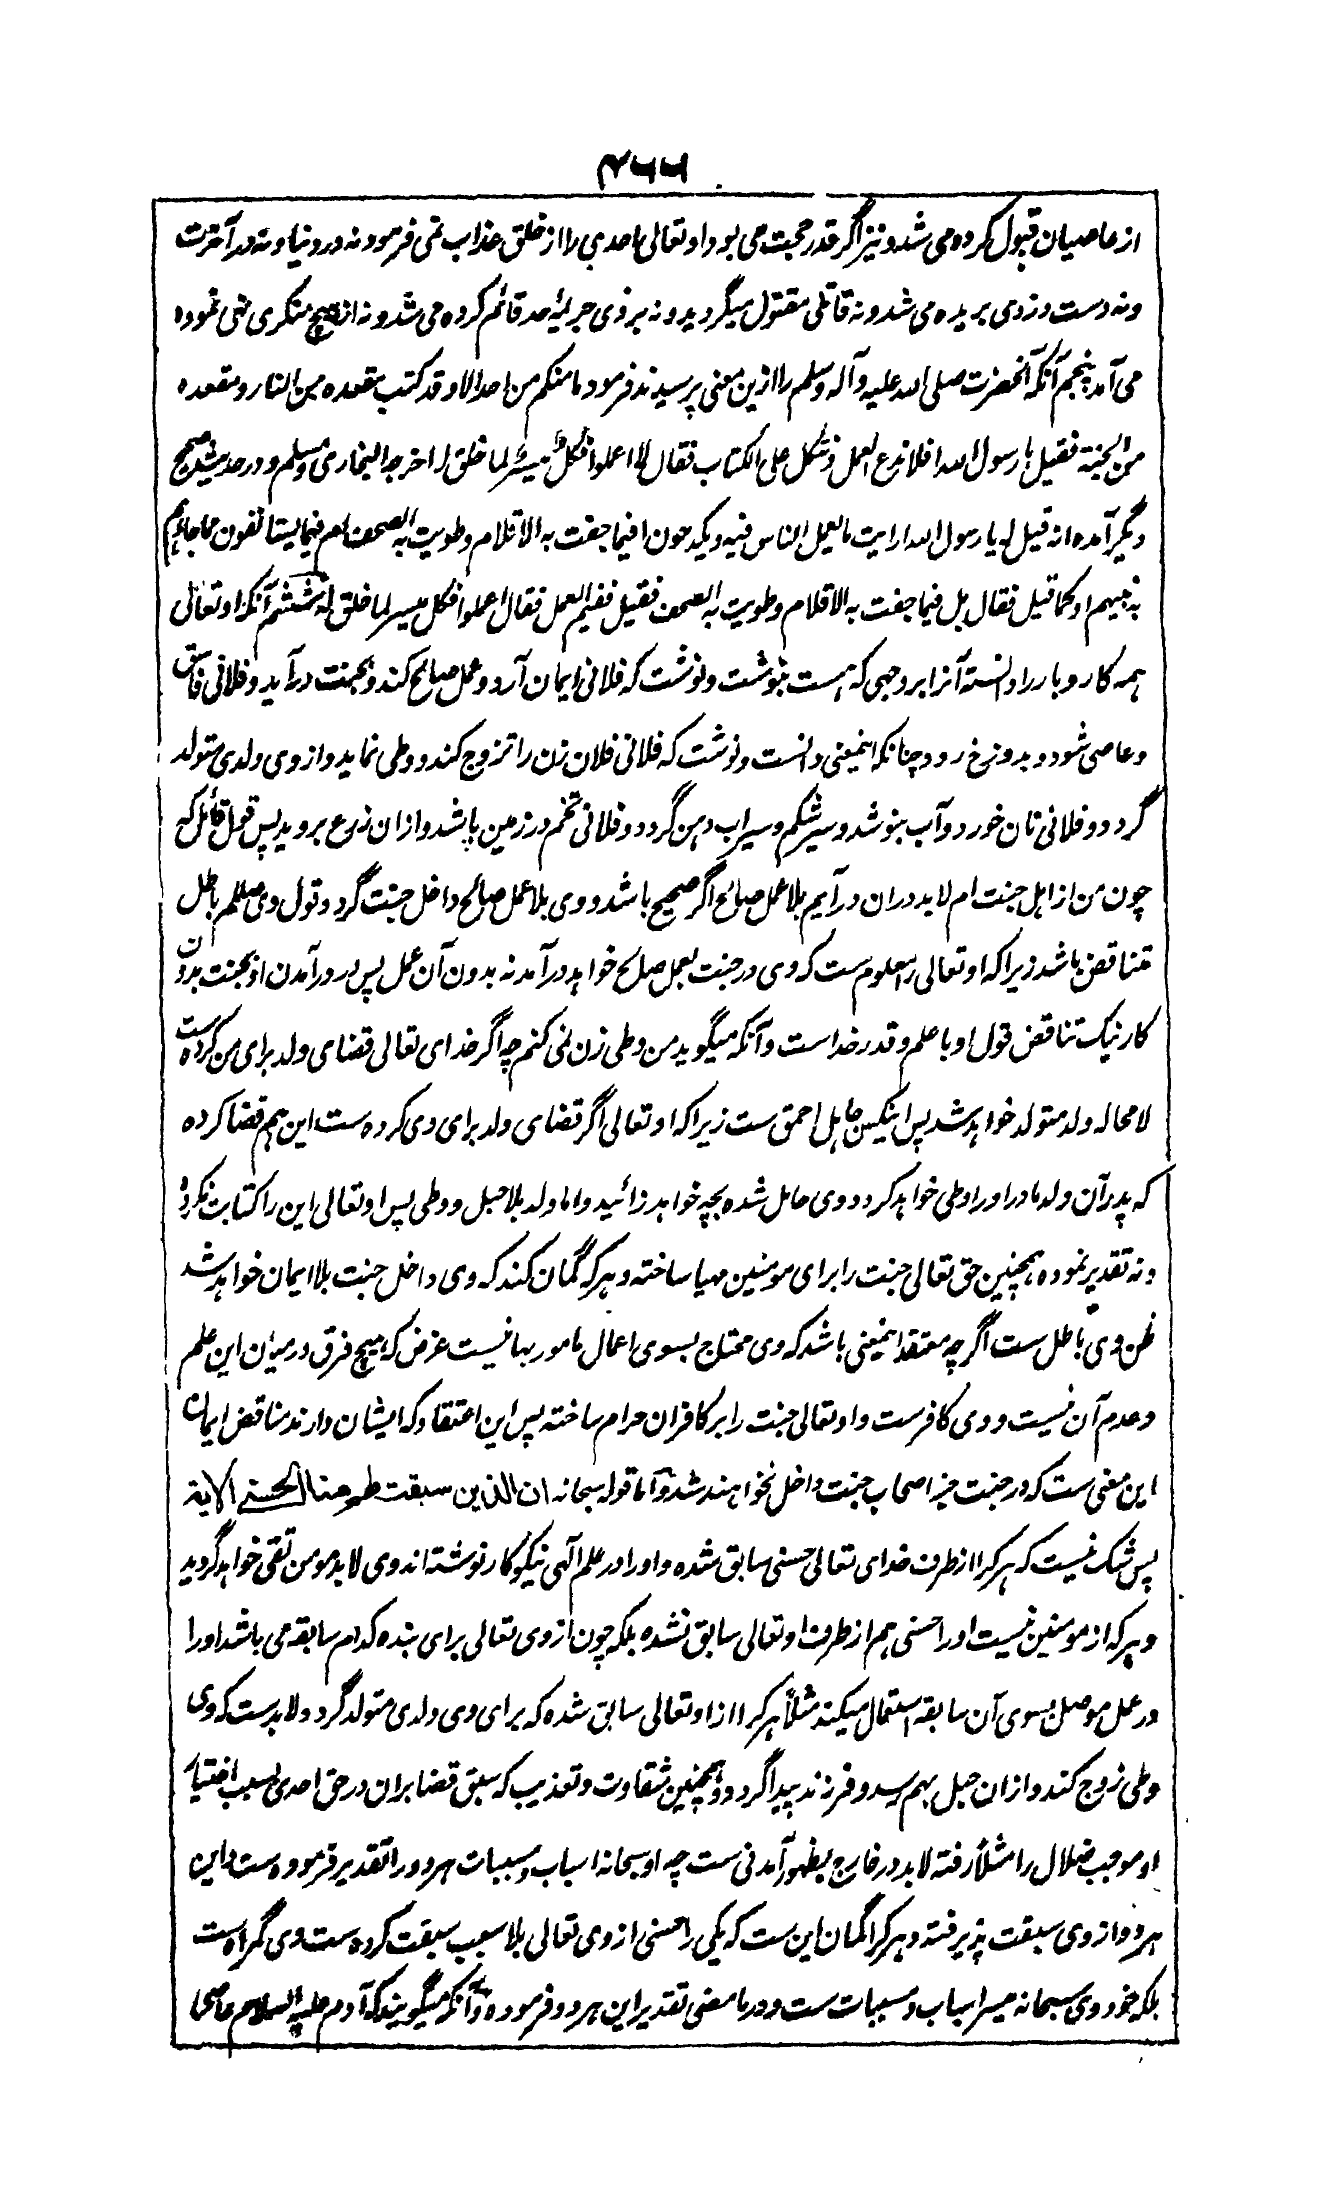 ۴۶۶
از عاصیان قبول کرده می شد و نیز اگر قدر حجت می بود او تعالی احدی را از خلق عذاب نمی فرمود نه در دنیا و نه در آخرت
و نه دست دزدی بریده می شد و نه قاتلی مقتول میگردید و نه بر ذی جریمه حد قائم کرده می شد و نه از هیچ منکری نهی نموده
می آمد پنجم آنکه آنحضرت صلی الله علیه وآله وسلم را ازین معنی پرسیدند فرمود ما منکم من احد الا وقد کتب مقعده من النار و مقعده
من الجنة فقیل یا رسول الله افلا ندع العمل و نتکل علی الکتاب فقال لا اعملوا فکل میسر لما خلق له اخرجه البخاری ومسلم و در حدیث صحیح
دیگر آمده انه قیل له یا رسول الله ارایت ما یعمل الناس فیه ویکدحون افیما جفت به الاقلام وطویت به الصحف ام فیما یستانفون مما جاءهم
به نبیهم او کما قیل فقال بل فیما جفت به الاقلام وطویت به الصحف فقیل ففیم العمل فقال اعملوا فکل میسر لما خلق له ششم آنکه او تعالی
همه کار و بار را دانسته آنرا بر وجهی که هست بنوشت و نوشت که فلانی ایمان آرد و عمل صالح کند و بجنت درآید و فلانی فاسق
و عاصی شود و بدوزخ رود چنانکه اینمعنی دانست و نوشت که فلانی فلان زن را تزوج کند و وطی نماید و از وی ولدی متولد
گردد و فلانی نان خورد و آب بنوشد و سیر شکم و سیراب دهن گردد و فلانی تخم در زمین پاشد و ازان زرع بروید پس قول قائل که
چون من از اهل جنت ام لابد دران درآیم بلا عمل صالح اگر صحیح باشد و وی بلا عمل صالح داخل جنت گردد قول وی باطل
متناقض باشد زیرا که او تعالی را معلوم ست که وی در جنت بعمل صالح خواهد درآمد نه بدون آن عمل پس درآمدن او بجنت بدون
کار نیک تناقض قول او با علم و قدر خداست و آنکه میگوید من وطی زن نمی کنم چه اگر خدای تعالی قضای ولد برای من کرده ست
لا محاله ولد متولد خواهد شد پس اینکس جاهل احمق ست زیرا که او تعالی اگر قضای ولد برای وی کرده ست این هم قضا کرده
که پدر آن ولد مادر او را وطی خواهد کرد و وی حامل شده بچه خواهد زائید و اما ولد بلا حبل و وطی پس او تعالی این را کتابت نکرده
و نه تقدیر نموده همچنین حق تعالی جنت را برای مومنین مهیا ساخته و هر که گمان کند که وی داخل جنت بلا ایمان خواهد شد
ظن وی باطل ست اگر چه معتقد اینمعنی باشد که وی محتاج بسوی اعمال مامور بها نیست غرض که هیچ فرق درمیان این علم
و عدم آن نیست و وی کافرست و او تعالی جنت را بر کافران حرام ساخته پس این اعتقاد که ایشان دارند مناقض ایمان
این معنی ست که در جنت جز اصحاب جنت داخل نخواهند شد و اما قوله سبحانه ان الذین سبقت لهم منا الحسنی الایة
پس شک نیست که هر کرا از طرف خدای تعالی حسنی سابق شده و او را در علم الهی نیکوکار نوشته اند وی لابد مومن تقی خواهد گردید
و هر که از مومنین نیست او را حسنی هم از طرف او تعالی سابق نشده بلکه چون از وی تعالی برای بنده کدام سابقه می باشد او را
در عمل موصل بسوی آن سابقه استعمال میکند مثلا هر کرا از او تعالی سابق شده که برای وی ولدی متولد گردد لابد ست که وی
وطی زوج کند و ازان حبل بهم رسد و فرزند پیدا گردد و همچنین شقاوت و تعذیب که سبق قضا بران در حق احدی بسبب اختیار
او موجب ضلال را مثلا رفته لابد در خارج بظهور آمدنی ست چه او سبحانه اسباب و مسببات هر دو را تقدیر فرموده ست و این
هر دو از وی سبقت پذیرفته و هر کرا گمان این ست که یکی را حسنی از وی تعالی بلا سبب سبقت کرده ست وی گمراه ست
بلکه خود وی سبحانه میسر اسباب و مسببات ست و در ما مضی تقدیر این هر دو فرموده و آنکه میگویند که آدم علیه السلام عاصی